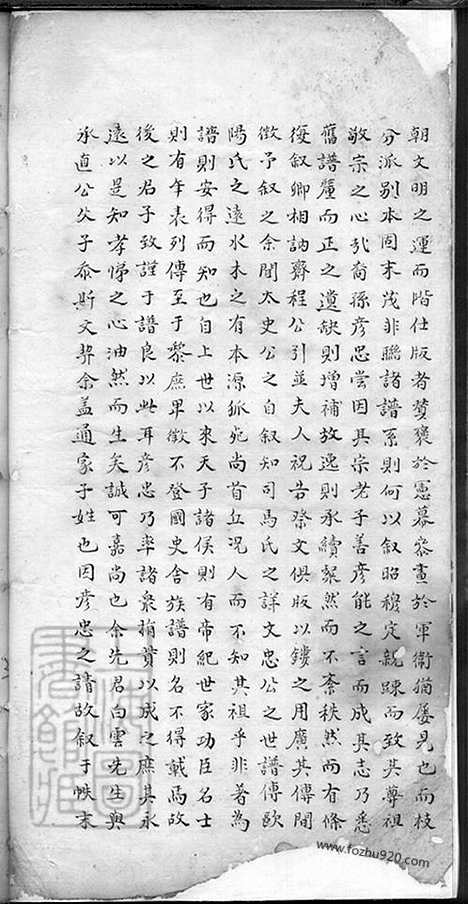 朝文明之運而階仕版者贊襄於憲幕叅畫於軍衛猶屢見也而枝
分派别本固末茂非聯諸譜系則何以叙昭穆定親踈而致其尊祖
敬宗之心哉裔孫彦忠嘗因其宗老子善彦能之言而成其志乃悉
舊譜釐而正之遺缺則增補放逸則承續粲然而不紊秩然而有條
復叙卿相訥齋程公引並夫人祝告祭文俱版以鏤之用廣其傳間
徵予叙之余聞太史公之自叙知司馬氏之詳文忠公之世譜傳歐
陽氏之遠水木之有本源狐兔尚首丘况人而不知其祖乎非著為
譜則安得而知也自上世以來天子諸侯則有帝紀世家功臣名士
則有年表列傳至于黎庶卑微不登國史舍族譜則名不得載焉故
後之君子致謹于譜良以此耳彦忠乃率諸衆捐貲以成之庶其永
遠以是知孝悌之心油然而生矣誠可嘉尚也余先君白雲先生與
承直公父子忝斯文契余盖通家子姓也因彦忠之請故叙于帙末
www.fozhu920.com